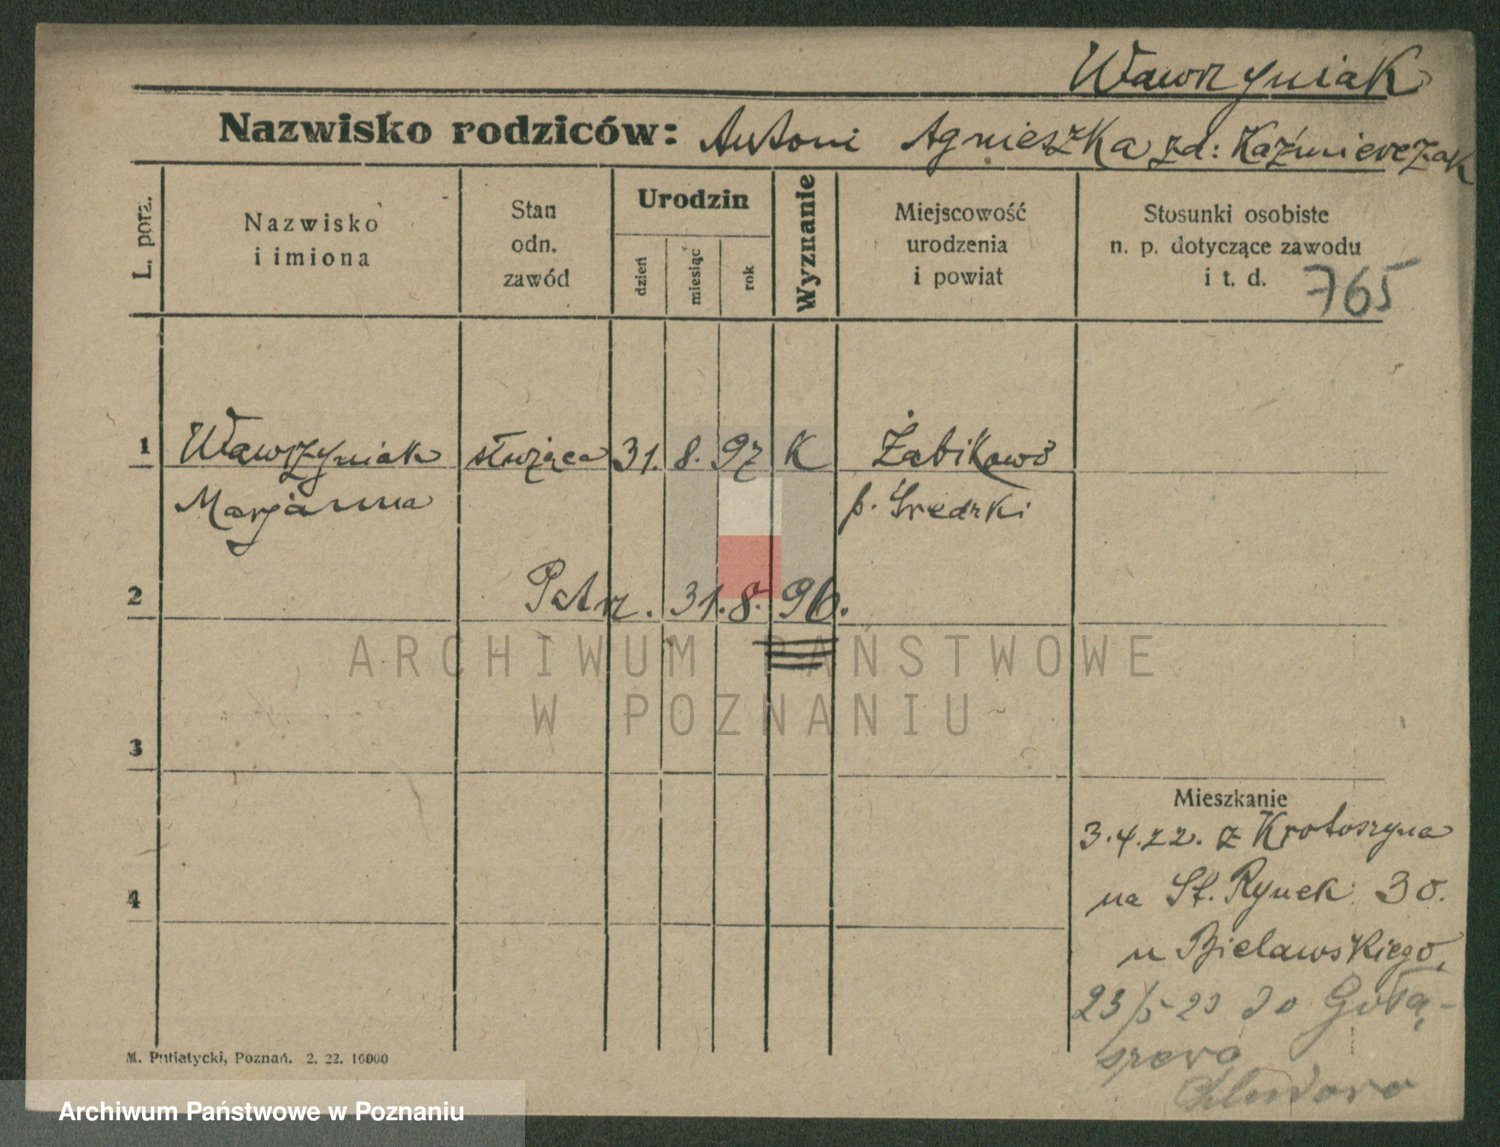 Wawrzyniak
Nazwisko rodziców: Antoni Agnieszka zd: Kaźmierczak
L. porz.
Nazwisko
i imiona
Stan
odn.
zawód
Urodzin
dzień
miesiąc
rok
Wyznanie
Miejscowość
urodzenia
i powiat
Stosunki osobiste
n. p. dotyczące zawodu
i t. d.
765
1 Wawrzyniak służąca 31. 8. 97 K Żabikowo
Marjanna p. Średzki
2 Patrz. 31. 8. 96.
ARCHIWUM PAŃSTWOWE
W POZNANIU
3
Mieszkanie
3.4.22. z Krotoszyna
4
na St. Rynek 30.
u Bielawskiego,
23/5-23 do
M. Putiatycki, Poznań. 2. 22. 10000
Archiwum Państwowe w Poznaniu